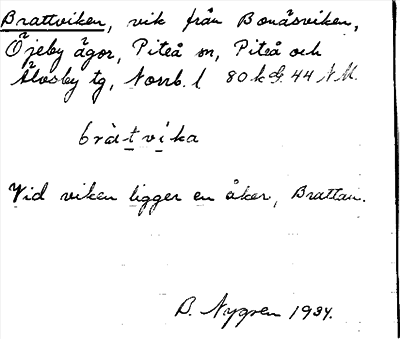 Brattviken, vik från Bonäsviken,
Öjeby ägor, Piteå sn, Piteå och
Älvsby tg, Norrb. l 80 k G. 44 N.M.
bràtvika
Vid viken ligger en åker, Brattan.
B. Nygren 1934.